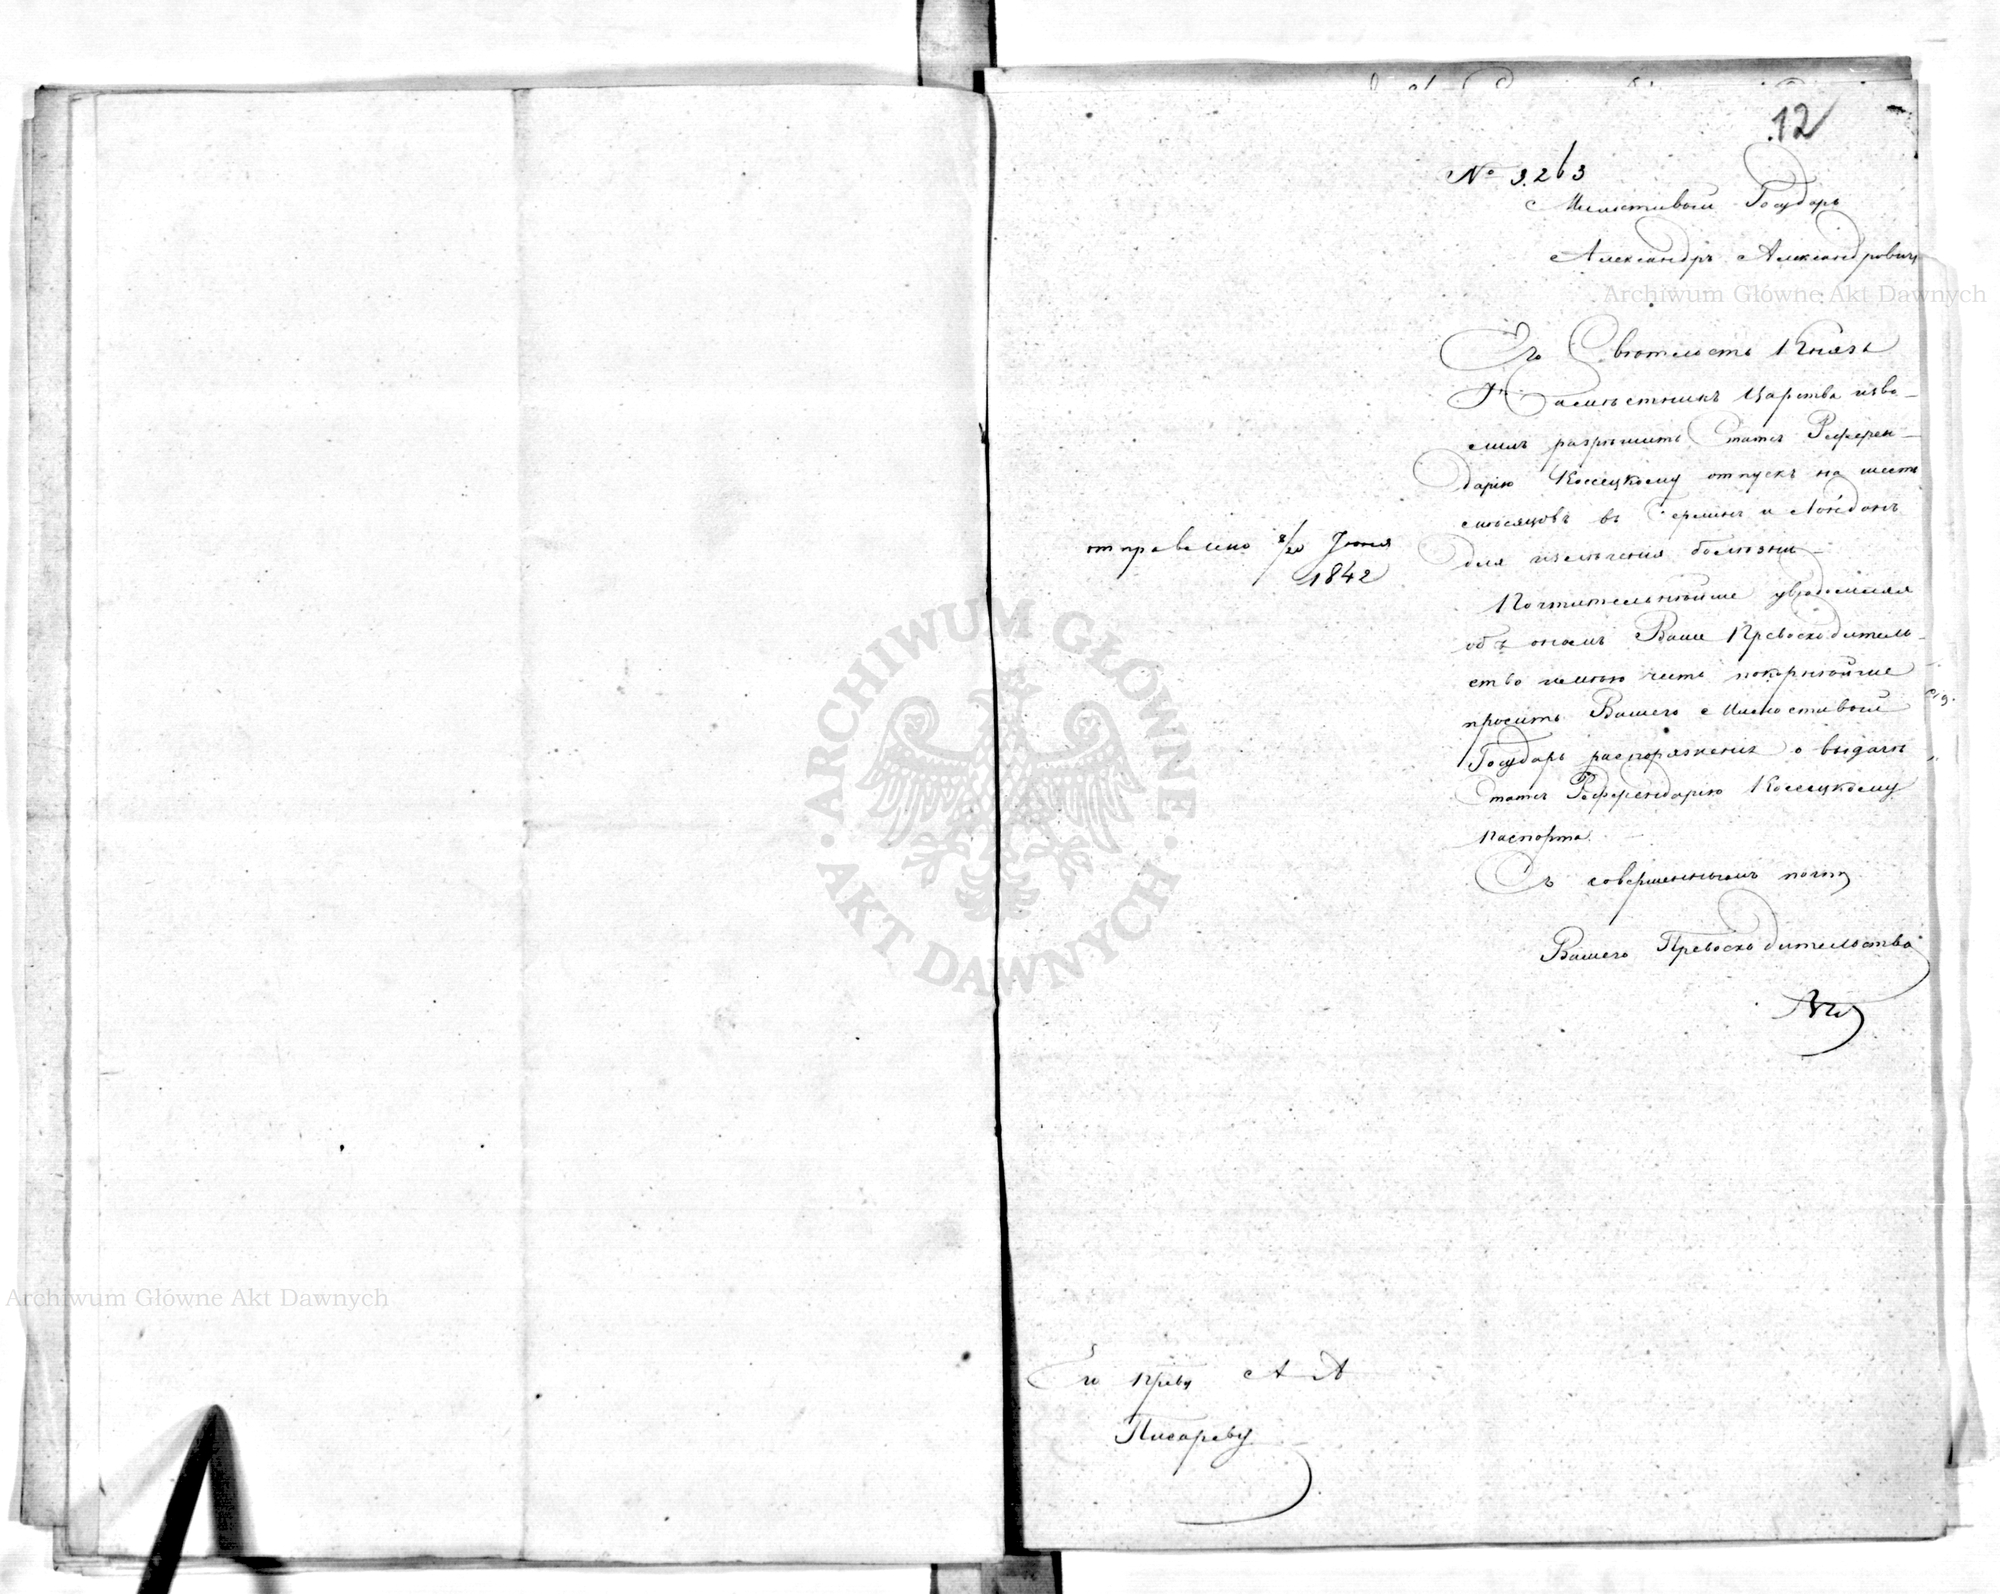 12
№ 3.263
Милостивый Государь
Александръ Александровичъ
Его Светлость Князь
Намѣстникъ Царства изво-
лилъ разрѣшить Статсъ Референ-
дарію Коссецкому отпускъ на шесть
мѣсяцовъ въ Берлинъ и Лондонъ
для излеченія болѣзни
отправлено 8/20 Іюня
1842
Почтительнѣйше увѣдомляя
объ ономъ Ваше Превосходитель-
ство имѣю честь покорнѣйше
просить Вашего Милостивый
Государь распоряженія о выдачѣ
Статсъ Референдарію Коссецкому
паспорта.
Съ совершеннымъ почт
Вашего Превосходительства
Его Прев. А. А.
Писареву
ARCHIWUM GŁÓWNE AKT DAWNYCH
Archiwum Główne Akt Dawnych
Archiwum Główne Akt Dawnych